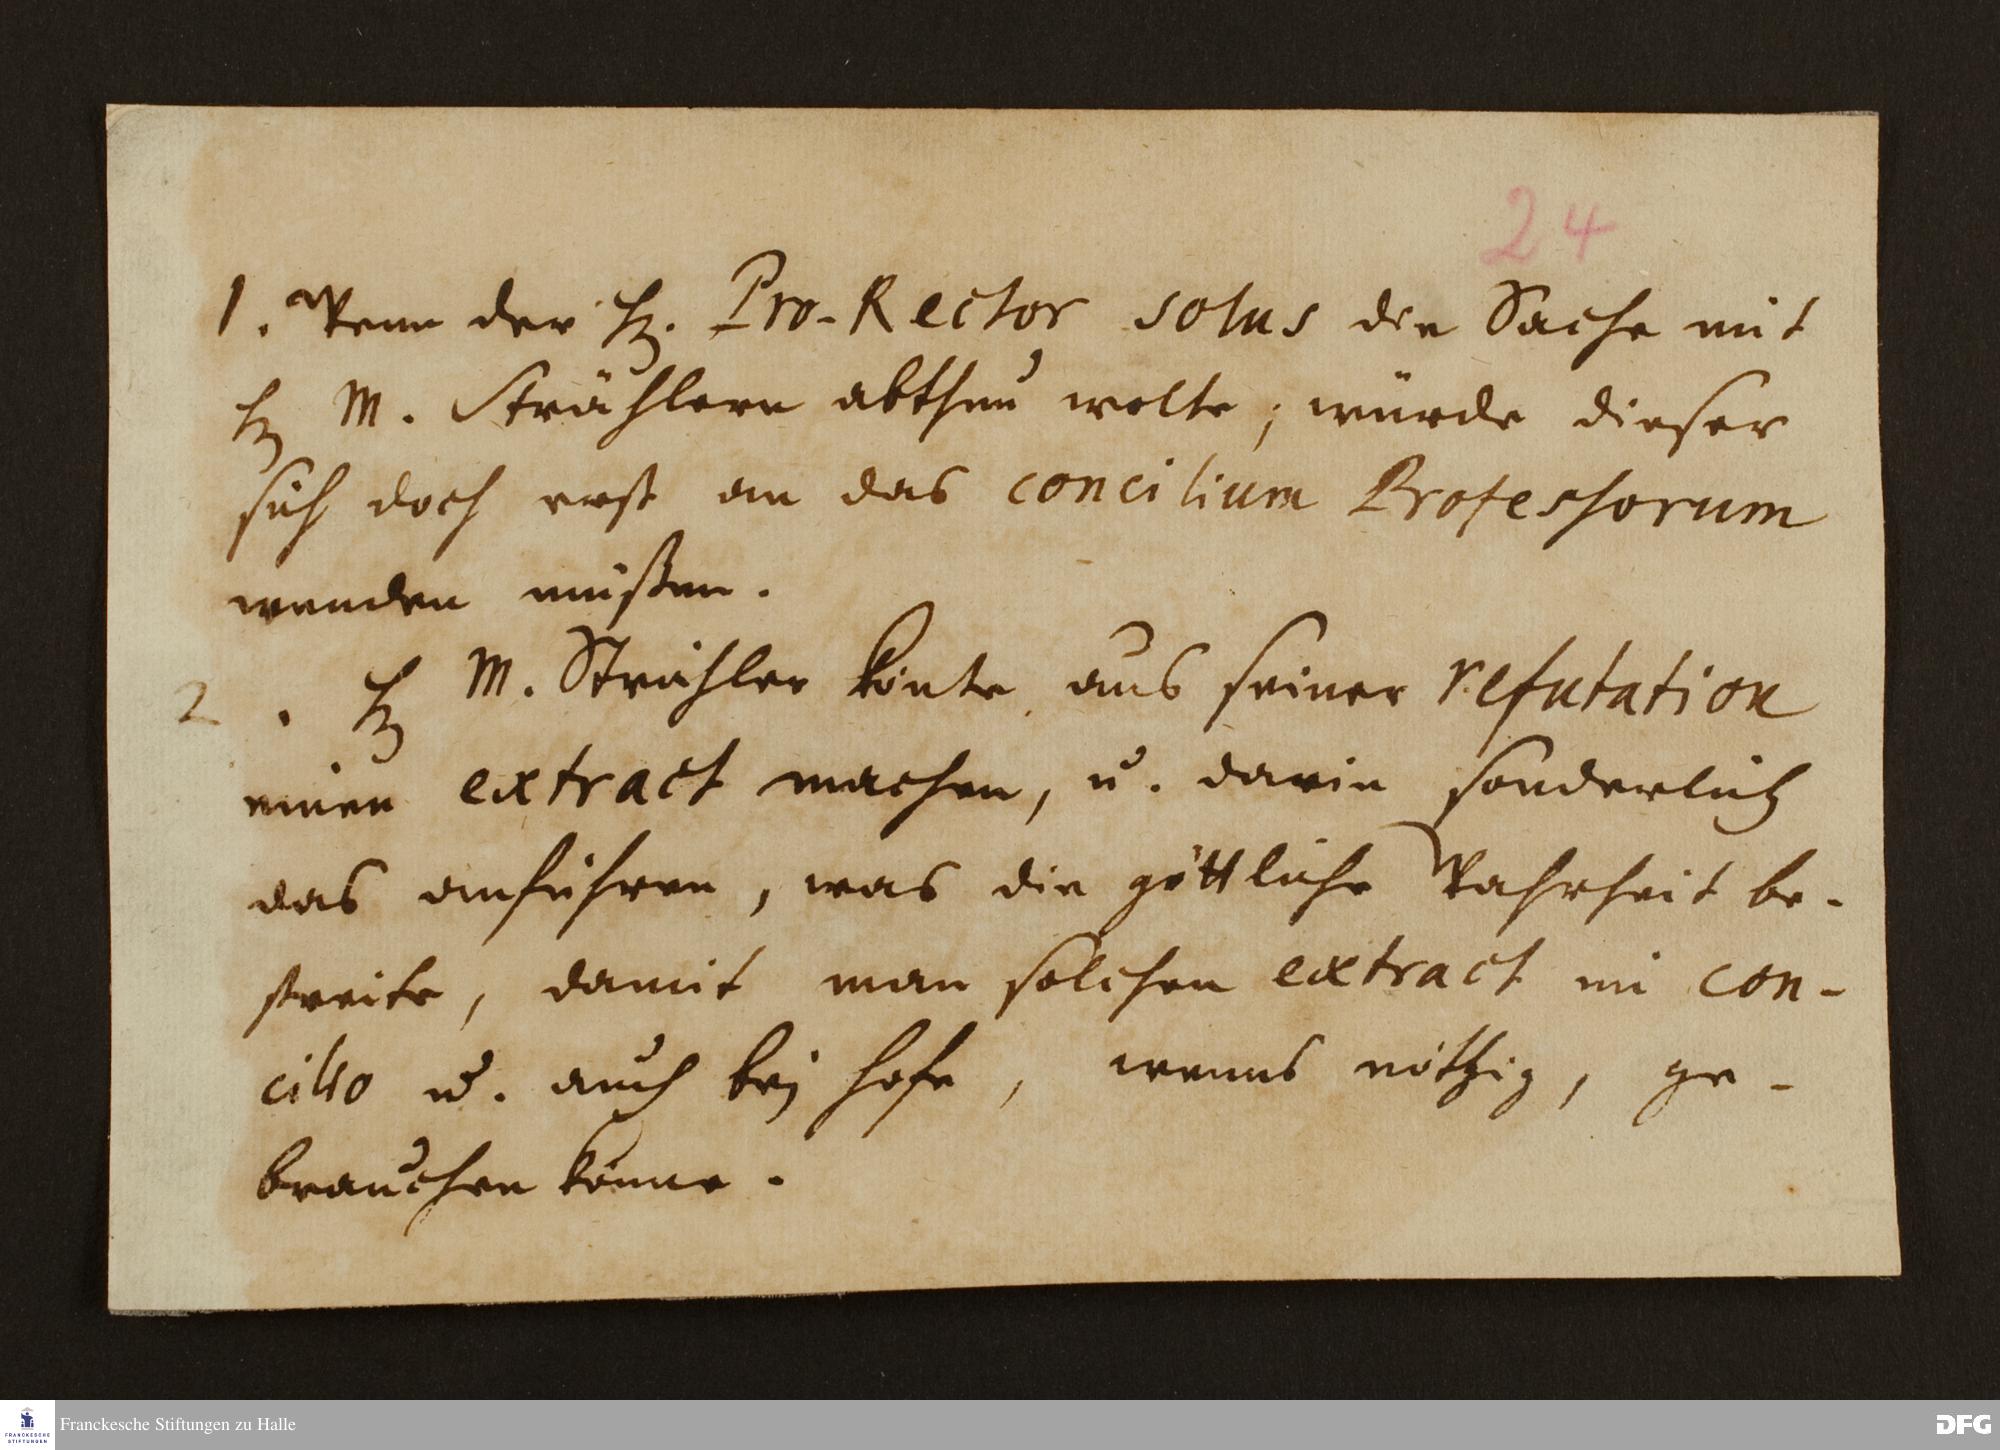 24
1. Wenn der H. Pro-Rector solus die Sache mit
H M. Strählern abthun wolte, würde dieser
sich doch erst an das concilium Professorum
wenden müßen.
2. H M. Strähler könte aus seiner refutation
einen extract machen, u. darin sonderlich
das anführen, was die göttliche Wahrheit be-
streite, damit man solchen extract im con-
cilio u. auch bey Hofe, wenns nöthig, ge-
brauchen könne.
FRANCKESCHE STIFTUNGEN
Franckesche Stiftungen zu Halle
DFG